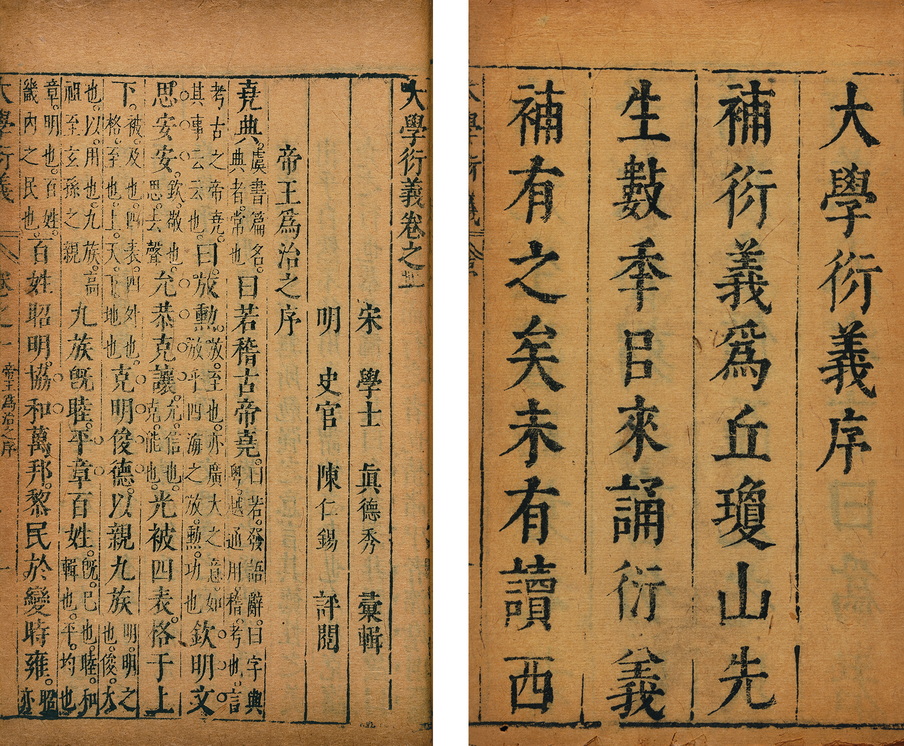 大學衍義序
補衍義爲丘瓊山先
生數秊㠯來誦衍義
補有之矣未有讀西
大學衍義卷之一
宋 學士 眞德秀 彙輯
明 史官 陳仁錫 評閱
帝王爲治之序
堯典。虞書篇名。典者常也曰若稽古帝堯。曰若。發語辭。曰字典粵越通用。稽。考也。言
考古之帝堯。其事云云也。曰。放勳。放。至也。亦廣大之意。如放乎四海之放。勳。功也。欽明文
思安安。欽。敬也。思。去聲。允恭克讓。允。信也。克。能也。光被四表。格于上
下。被。及也。四表。四外也。格。至也。上。天。下。地也。克明俊德。以親九族。明。明之也。俊。大
也。以。用也。九族。高祖至玄孫之親九族旣睦。平章百姓。旣。已也。睦。和輯也。平。均也
章。明也。百姓。畿內之民也。百姓昭明。協和萬邦。黎民於變時雍。昭亦
大學衍義 卷之一 帝王爲治之序 一